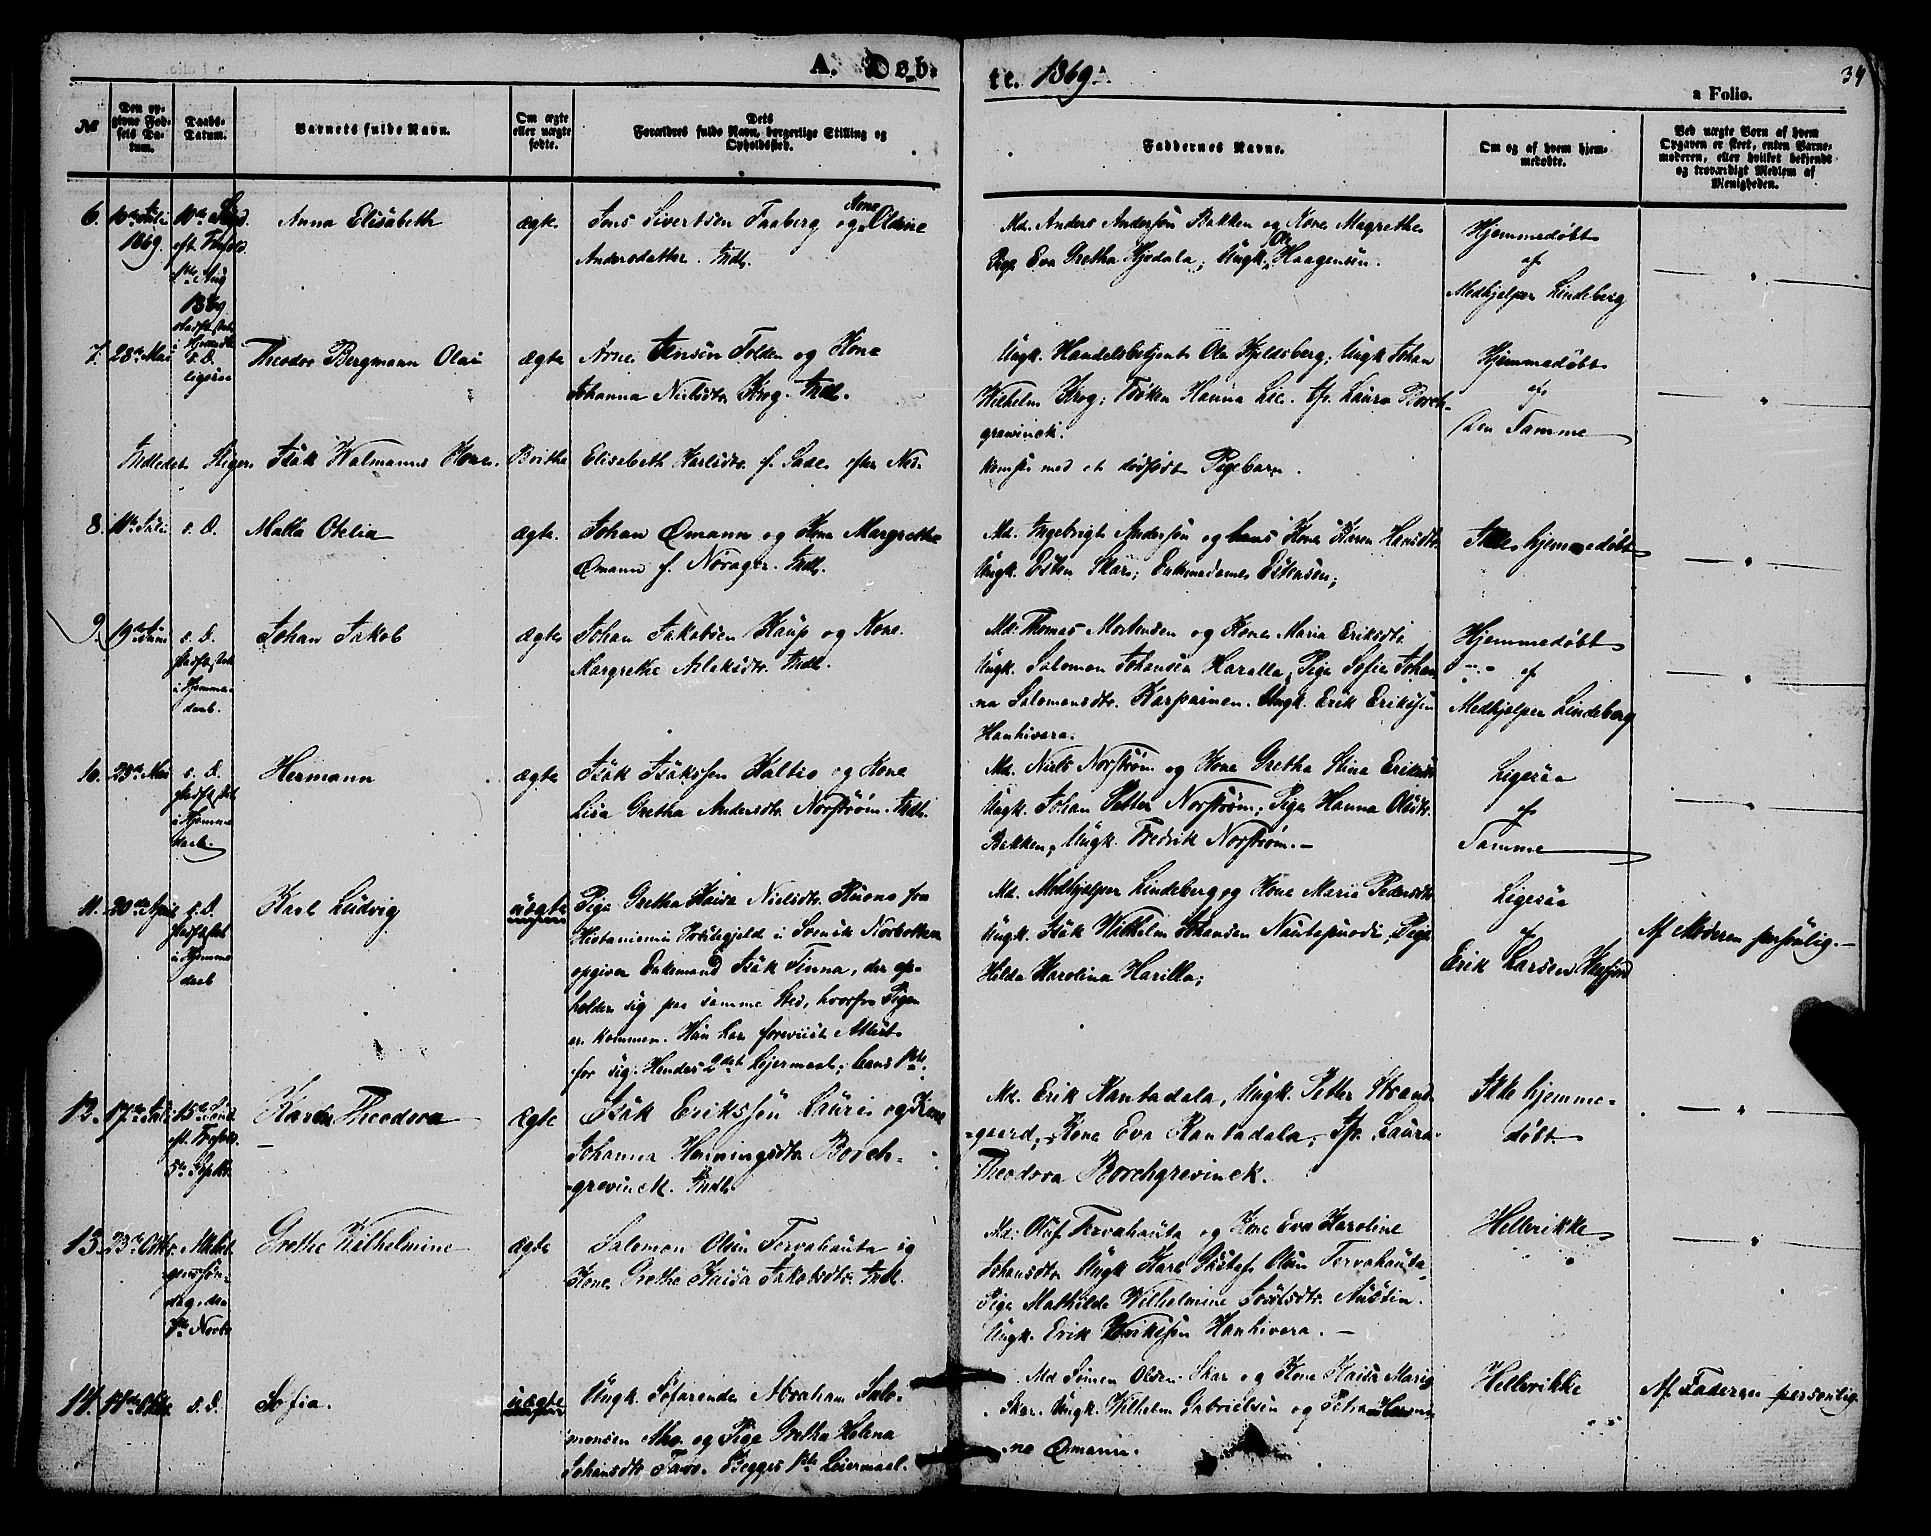 A. Døb-
te. 1869.
34
a Folio.
№
Den op-
givne Fød-
sels Da-
tum.
Daabs-
Datum.
Barnets fulde Navn.
Om ægte
eller uægte
fødte.
Dets
Forældres fulde Navn, borgerlige Stilling og
Opholdssted.
Faddernes Navne.
Om og af hvem hjem-
medøbt.
Ved uægte Born af hvem
Opgaven er skeet, enten Barne-
moderen, eller hvilket bekjendt
og troværdigt Medlem af
Menigheden.
6.
1869.
10de Sønd.
eft. Trefold.
1ste Aug
1869
Anna Elisabeth
ægte
Jens Sivertsen Faaberg og Kone Oldine
Andersdatter. Indl.
Md. Anders Andersen Bakken og Kone Magrethe
Pige Eva Gretha Hjedala; Ungk. Ole Haagensen.
Hjemmedøbt
af
Medhjelper Lindeberg
7.
28de Mai
s. D.
ligesaa
Theodor Bergmann Olai
ægte
Arne Jensen Folden og Kone
Johanna Nielsdtr. Krog. Indl.
Ungk. Handelsbetjent Ole Kjeldsberg; Ungk Johan
Wilhelm Krog; Frøken Hanna Lie. Fr. Laura Borch-
grevinck.
Hjemmedøbt
af
den Samme
Indledet Steiger Isak Walmanns Kone, Britha Elisabeth Karlsdtr. f. Sade efter Ned-
komst med et dødfødt Pigebarn.
8.
s. D.
Malla Otelia
ægte.
Johan Ømann og Kone Margrethe
Ømann f. Norager. Indl.
Md. Ingebrigt Andersen og hans Kone Karen Hansdtr.
Ungk. Esten Skar; Enkemadame Estensen;
Ikke hjemmedøbt
9.
19de Juni
s. D.
stadfæstet
i Hjemme-
daab.
Johan Jakob
ægte
Johan Jakobsen Kaup og Kone
Margrethe Aslaksdtr. Indl.
Md. Thomas Mortensen og Kone Maria Eriksdtr.
Ungk. Salomon Johansen Haralla, Pige Sofia Johan-
na Salomonsdtr. Karpainen. Ungk. Erik Eriksen
Hanhivara.
Hjemmedøbt
af
Medhjelper Lindeberg
10.
s. D.
stadfæstet
i Hjemme
daab.
Hermann
ægte
Isak Isaksen Kaltio og Kone
Lisa Gretha Andersdtr. Norstrøm. Indl.
Md. Niels Norstrøm og Kone Gretha Stina Eriksdtr.
Ungk. Johan Petter Norstrøm, Pige Hanna Olsdtr.
Bakken, Ungk. Fredrik Norstrøm.
Ligesaa
af
Samme
11.
20de April
s. D.
stadfæstet
i Hjemme
daab
Karl Ludvig
uægte
Pige Gretha Kaisa Nielsdtr. Ruona fra
Hietaniemi Præstegjeld i Svensk Norbotten
opgiver Enkemand Isak Finna, der op-
holder sig paa samme Sted, hvorfra Pigen
er kommen. Hun har foreviist Attest
for sig. Hendes 2det Leiermaal; hans 1ste.
Md. Medhjelper Lindeberg og Kone Maria Pedersdtr.
Ungk. Isak Wilhelm Johansen Nautapuodi; Pige
Hilda Karolina Harilla;
Ligesaa
af
Erik Larsen
Af Moderen personlig.
12.
17de
15de Sønd.
eft. Trefold.
5te Septbr.
Karen Theodora
ægte
Isak Eriksen Lauri og Kone
Johanna Henningsdtr. Borch-
grevinck. Indl.
Md. Erik Rantadala, Ungk. Petter Strand-
gaard, Kone Eva Rantadala, Fr. Laura
Theodora Borchgrevinck.
Ikke hjemme-
døbt
13.
23de Oktbr.
Allehel-
gens Søn-
dag, den
7de Novbr
Grethe Wilhelmine
ægte
Salomon Olsen Tervahauta og
Kone Gretha Kaisa Jakobsdtr. Indl.
Md. Oluf Tervahauta og Kone Eva Karoline
Johansdtr. Ungk Karl Gustaf Olsen Tervahauta
Pige Mathilde Wilhelmine Austin.
Ungk. Erik Eriksen Hanhivara.
Hellerikke
14.
s. D.
Sofia.
uægte
Ungk. Søfarende Abraham Salo-
monsen Aho og Pige Gretha Helena
Johansdtr. Begges 1ste Leiermaal.
Md Simen Olsen Skar og Kone Kaisa Maria
Skar. Ungk. Wilhelm Gabrielsen og Petra Herme-
na Ømann.
Hellerikke
Af Faderen personlig.